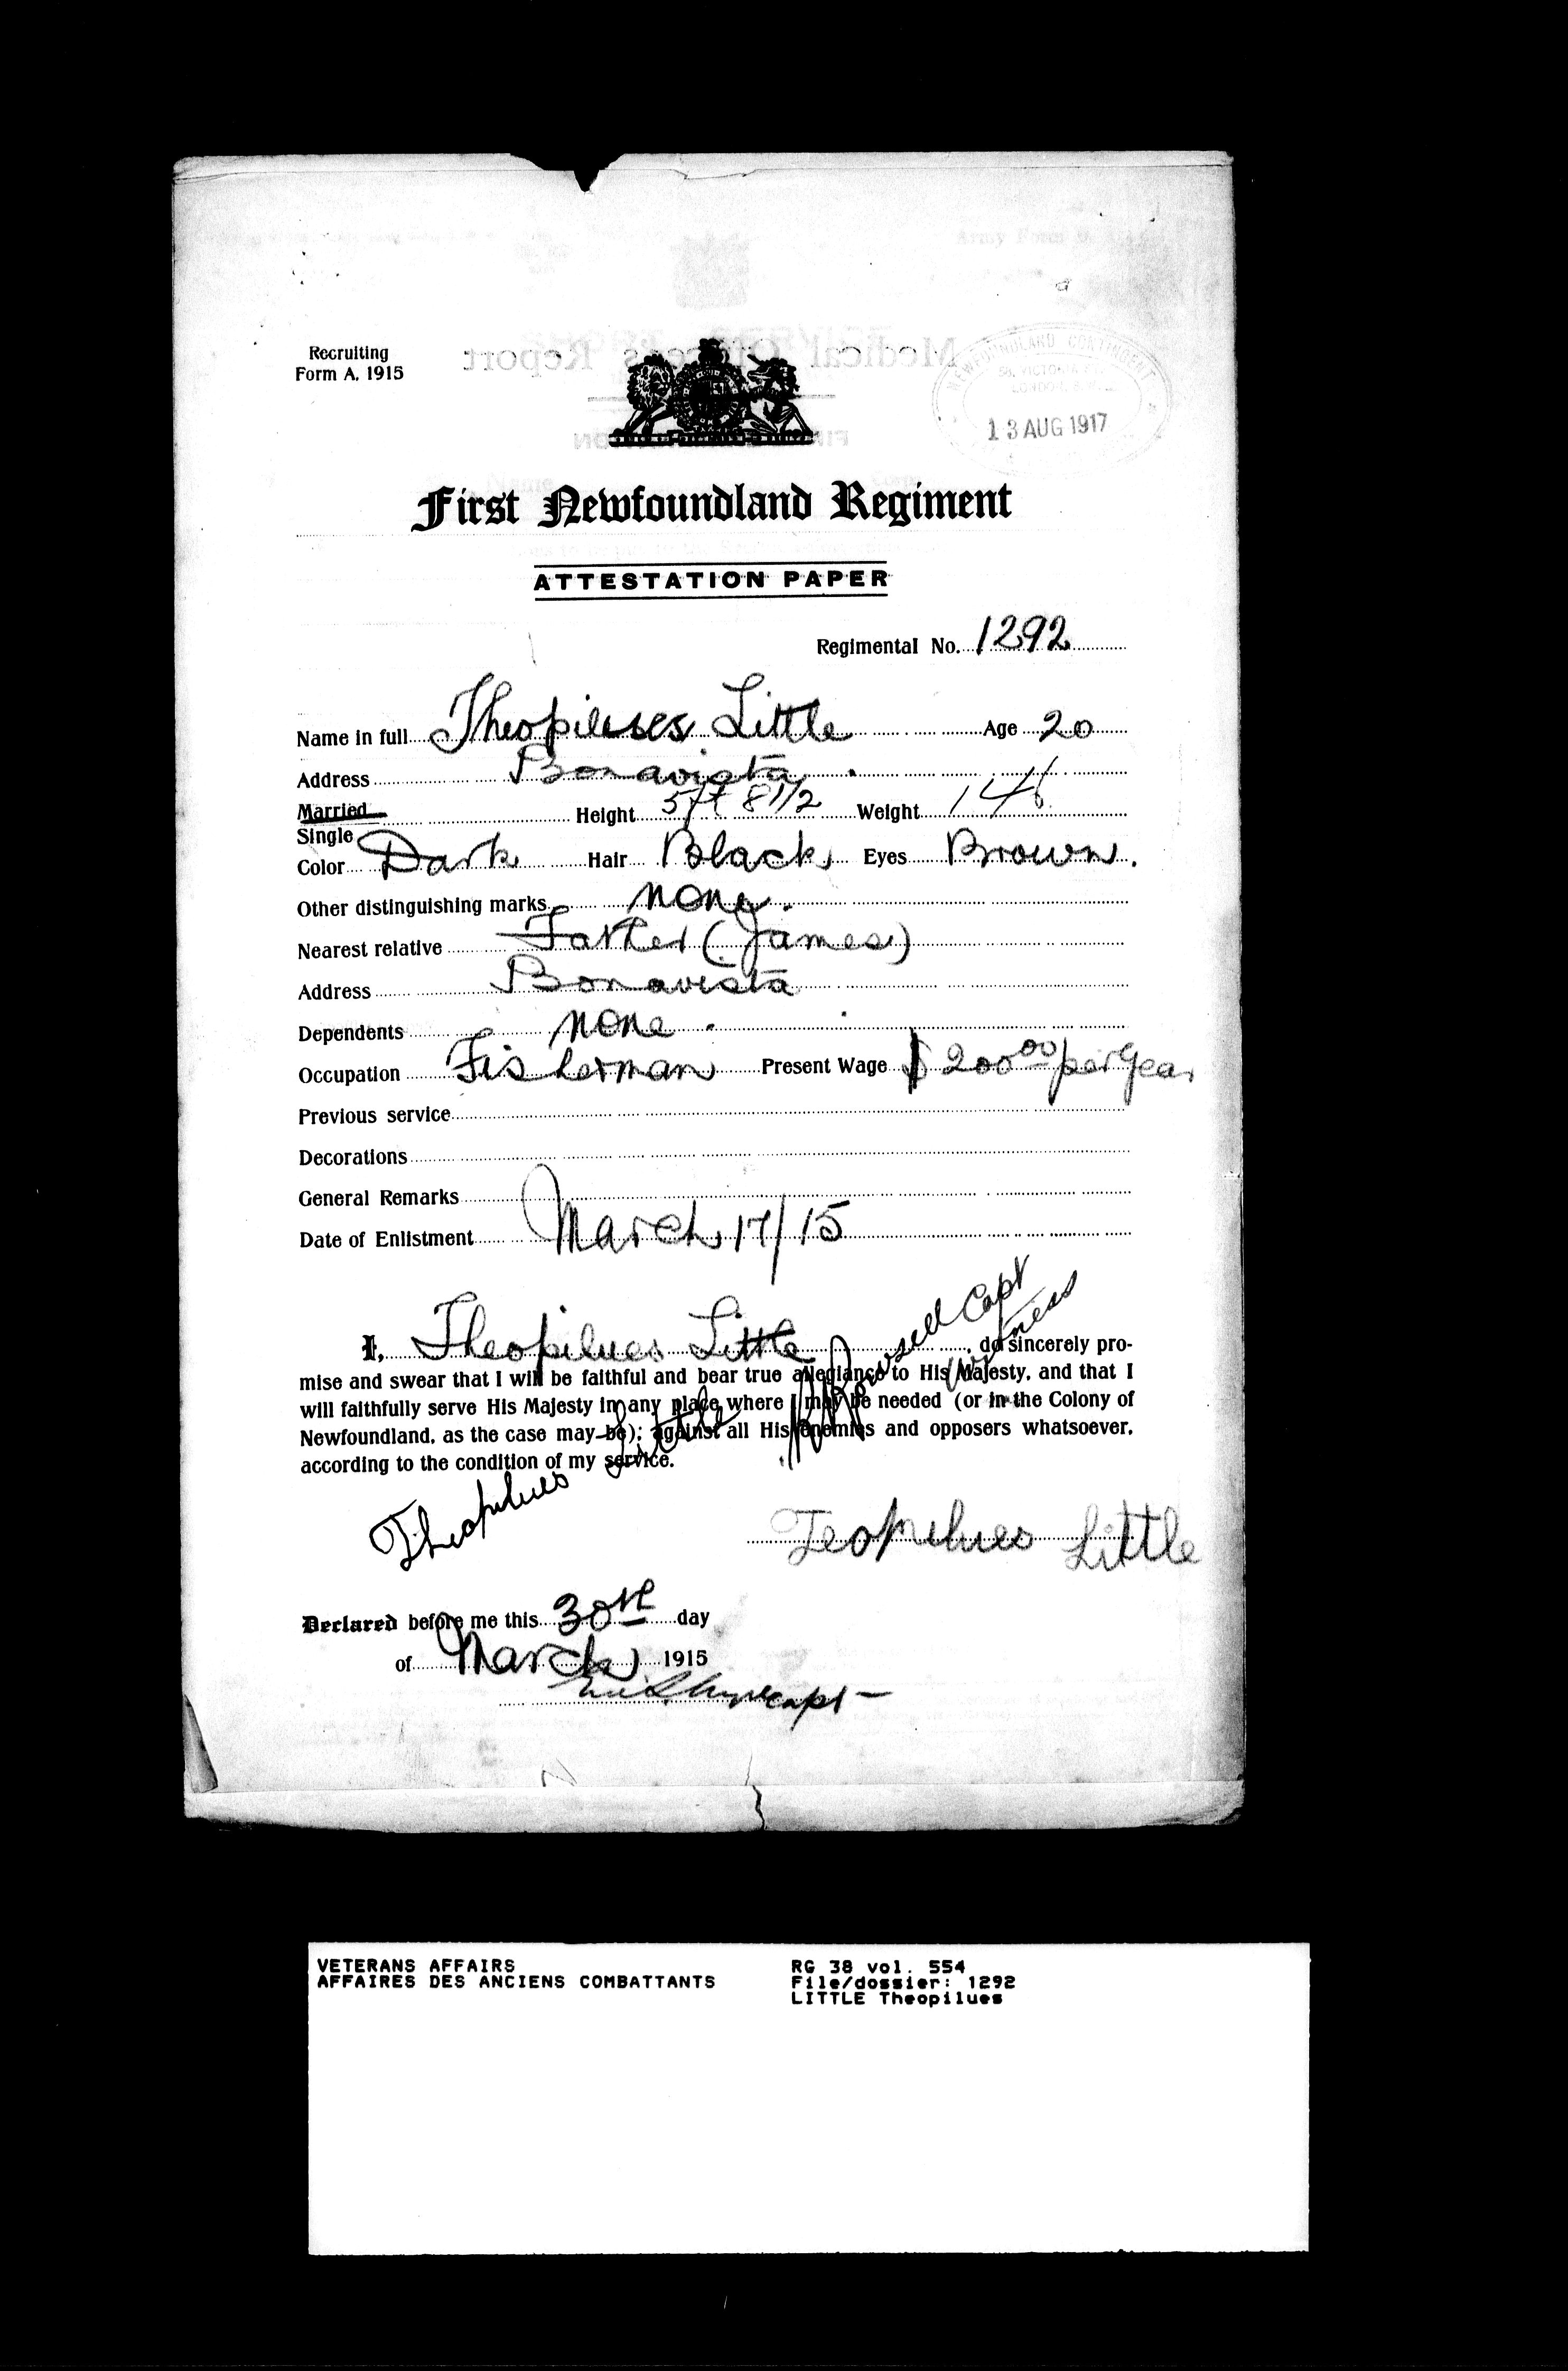 Recruiting
Form A. 1915
NEWFOUNDLAND CONTINGENT
58, VICTORIA
LONDON, S.W.
13 AUG 1917
Medical Officer's Report
First Newfoundland Regiment
ATTESTATION PAPER
Regimental No. 1292
Name in full Theopilues Little Age 20
Address Bonavista.
Married Height 5ft 8 1/2 Weight 148
Single
Color Dark Hair Black Eyes Brown.
Other distinguishing marks none.
Nearest relative Father (James)
Address Bonavista
Dependents none.
Occupation Fisherman Present Wage $200.00 per year
Previous service
Decorations
General Remarks
Date of Enlistment March 17/15
I, Theopilues Little do sincerely pro-
mise and swear that I will be faithful and bear true allegiance to His Majesty, and that I
will faithfully serve His Majesty in any place where I may be needed (or in the Colony of
Newfoundland, as the case may be); against all His enemies and opposers whatsoever,
according to the condition of my service.
Rowsell Capt
Witness
Theopilues Little
Teopilues Little
Declared before me this 30th day
of March 1915
Capt
VETERANS AFFAIRS RG 38 vol. 554
AFFAIRES DES ANCIENS COMBATTANTS File/dossier: 1292
LITTLE Theopilues